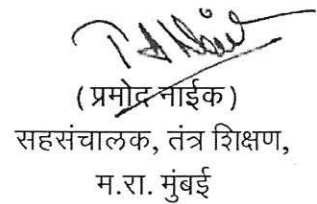 ( प्रमोद नाईक )
सहसंचालक, तंत्र शिक्षण,
म.रा. मुंबई